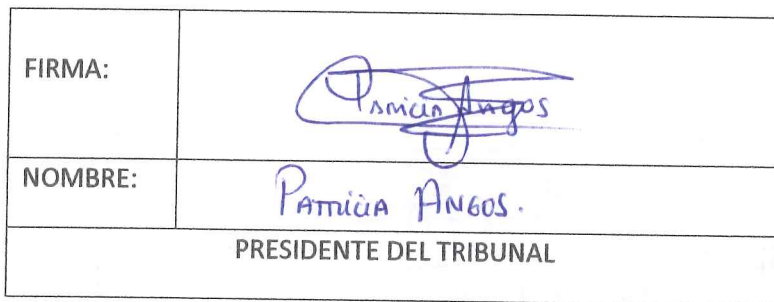 FIRMA:
Patricia Angos
NOMBRE:
PATRICIA ANGOS.
PRESIDENTE DEL TRIBUNAL